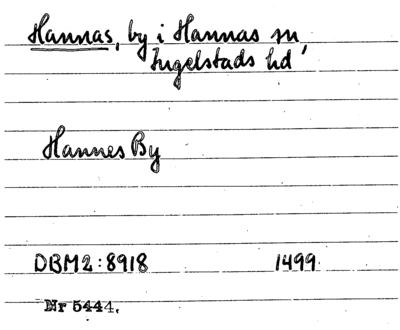 Hannas, by i Hannas sn,
Ingelstads hd
Hannes By
DBM2:8918 1499
Nr 5444.